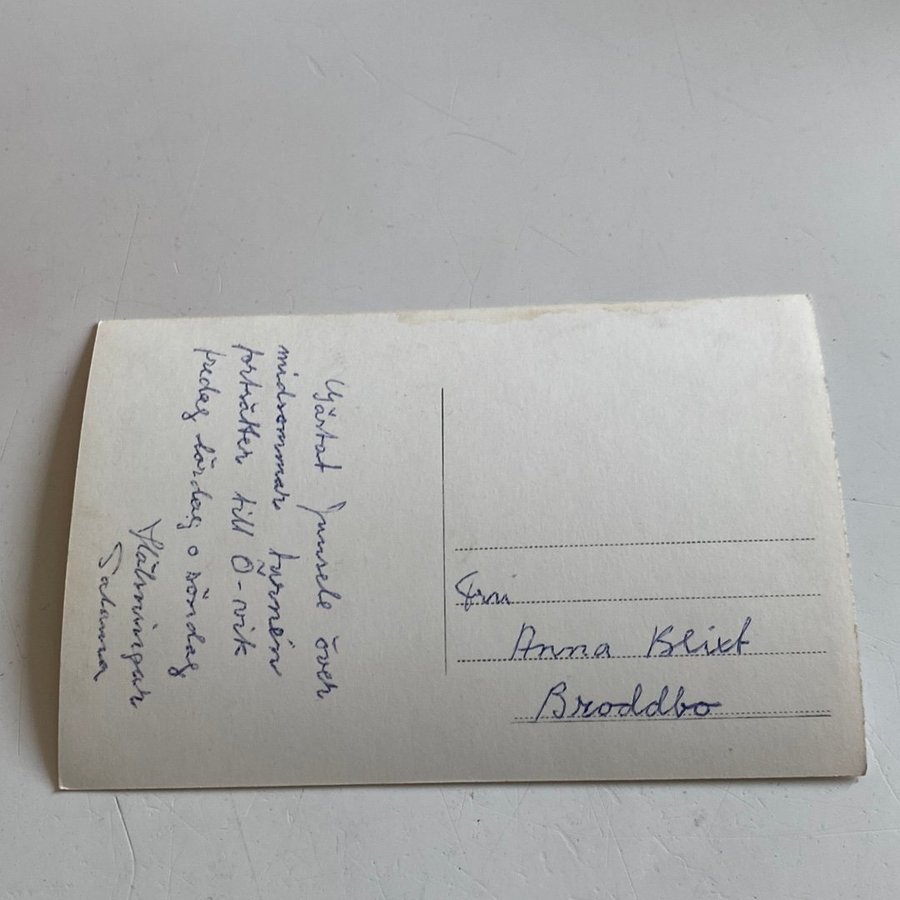 Gästat Junsele över
midsommar turnéin
fortsätter till Ö-vik
fredag lördag o söndag
Hälsningar
Fru
Anna Blixt
Broddbo